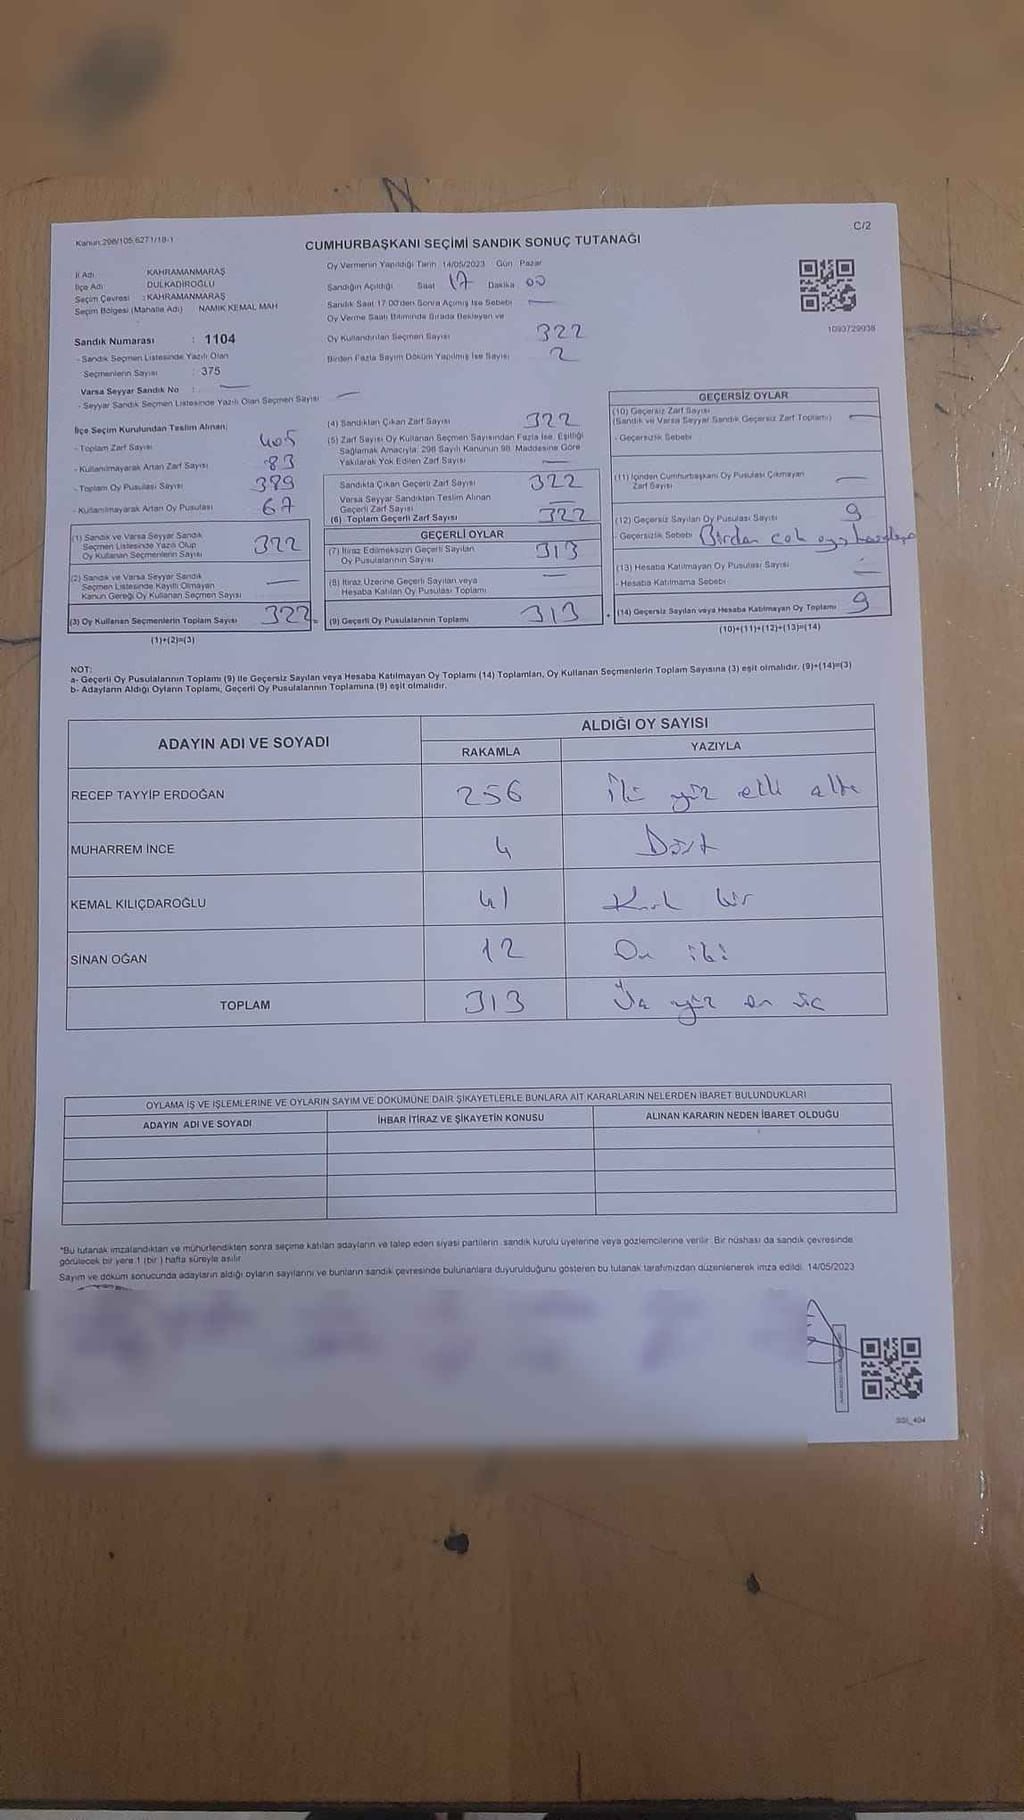 Kanun:298/105,6271/18-1
C/2
CUMHURBAŞKANI SEÇİMİ SANDIK SONUÇ TUTANAĞI
İl Adı KAHRAMANMARAŞ
İlçe Adı DULKADİROĞLU
Seçim Çevresi : KAHRAMANMARAŞ
Seçim Bölgesi (Mahalle Adı) NAMIK KEMAL MAH
Sandık Numarası : 1104
- Sandık Seçmen Listesinde Yazılı Olan
Seçmenlerin Sayısı : 375
Varsa Seyyar Sandık No :
- Seyyar Sandık Seçmen Listesinde Yazılı Olan Seçmen Sayısı
Oy Vermenin Yapıldığı Tarih 14/05/2023 Gün Pazar
Sandığın Açıldığı Saat 17 Dakika 00
Sandık Saat 17.00'den Sonra Açılmış İse Sebebi
Oy Verme Saati Bitiminde Sırada Bekleyen ve
Oy Kullandırılan Seçmen Sayısı 322
Birden Fazla Sayım Döküm Yapılmış İse Sayısı 2
1093729938
İlçe Seçim Kurulundan Teslim Alınan;
- Toplam Zarf Sayısı 405
- Kullanılmayarak Artan Zarf Sayısı 83
- Toplam Oy Pusulası Sayısı 389
- Kullanılmayarak Artan Oy Pusulası 67
(1) Sandık ve Varsa Seyyar Sandık
Seçmen Listesinde Yazılı Olup
Oy Kullanan Seçmenlerin Sayısı 322
(2) Sandık ve Varsa Seyyar Sandık
Seçmen Listesinde Kayıtlı Olmayan
Kanun Gereği Oy Kullanan Seçmen Sayısı
(3) Oy Kullanan Seçmenlerin Toplam Sayısı 322
(1)+(2)=(3)
(4) Sandıktan Çıkan Zarf Sayısı 322
(5) Zarf Sayısı Oy Kullanan Seçmen Sayısından Fazla İse, Eşitliği
Sağlamak Amacıyla; 298 Sayılı Kanunun 98. Maddesine Göre
Yakılarak Yok Edilen Zarf Sayısı
Sandıkta Çıkan Geçerli Zarf Sayısı 322
Varsa Seyyar Sandıktan Teslim Alınan
Geçerli Zarf Sayısı
(6) Toplam Geçerli Zarf Sayısı 322
GEÇERLİ OYLAR
(7) İtiraz Edilmeksizin Geçerli Sayılan
Oy Pusulalarının Sayısı 313
(8) İtiraz Üzerine Geçerli Sayılan veya
Hesaba Katılan Oy Pusulası Toplamı
(9) Geçerli Oy Pusulalarının Toplamı 313
GEÇERSİZ OYLAR
(10) Geçersiz Zarf Sayısı
(Sandık ve Varsa Seyyar Sandık Geçersiz Zarf Toplamı)
- Geçersizlik Sebebi
(11) İçinden Cumhurbaşkanı Oy Pusulası Çıkmayan
Zarf Sayısı
(12) Geçersiz Sayılan Oy Pusulası Sayısı 9
- Geçersizlik Sebebi Birden çok oya
(13) Hesaba Katılmayan Oy Pusulası Sayısı
- Hesaba Katılmama Sebebi
(14) Geçersiz Sayılan veya Hesaba Katılmayan Oy Toplamı 9
(10)+(11)+(12)+(13)=(14)
NOT:
a- Geçerli Oy Pusulalarının Toplamı (9) İle Geçersiz Sayılan veya Hesaba Katılmayan Oy Toplamı (14) Toplamları, Oy Kullanan Seçmenlerin Toplam Sayısına (3) eşit olmalıdır. (9)+(14)=(3)
b- Adayların Aldığı Oyların Toplamı, Geçerli Oy Pusulalarının Toplamına (9) eşit olmalıdır.
ADAYIN ADI VE SOYADI
ALDIĞI OY SAYISI
RAKAMLA YAZIYLA
RECEP TAYYİP ERDOĞAN 256 İki yüz elli altı
MUHARREM İNCE 4 Dört
KEMAL KILIÇDAROĞLU 41 Kırk bir
SİNAN OĞAN 12 On iki
TOPLAM 313 Üç yüz on üç
OYLAMA İŞ VE İŞLEMLERİNE VE OYLARIN SAYIM VE DÖKÜMÜNE DAİR ŞİKAYETLERLE BUNLARA AİT KARARLARIN NELERDEN İBARET BULUNDUKLARI
ADAYIN ADI VE SOYADI İHBAR İTİRAZ VE ŞİKAYETİN KONUSU ALINAN KARARIN NEDEN İBARET OLDUĞU
*Bu tutanak imzalandıktan ve mühürlendikten sonra seçime katılan adayların ve talep eden siyasi partilerin, sandık kurulu üyelerine veya gözlemcilerine verilir. Bir nüshası da sandık çevresinde
görülecek bir yere 1 (bir) hafta süreyle asılır.
Sayım ve döküm sonucunda adayların aldığı oyların sayılarını ve bunların sandık çevresinde bulunanlara duyurulduğunu gösteren bu tutanak tarafımızdan düzenlenerek imza edildi. 14/05/2023
SSI_404